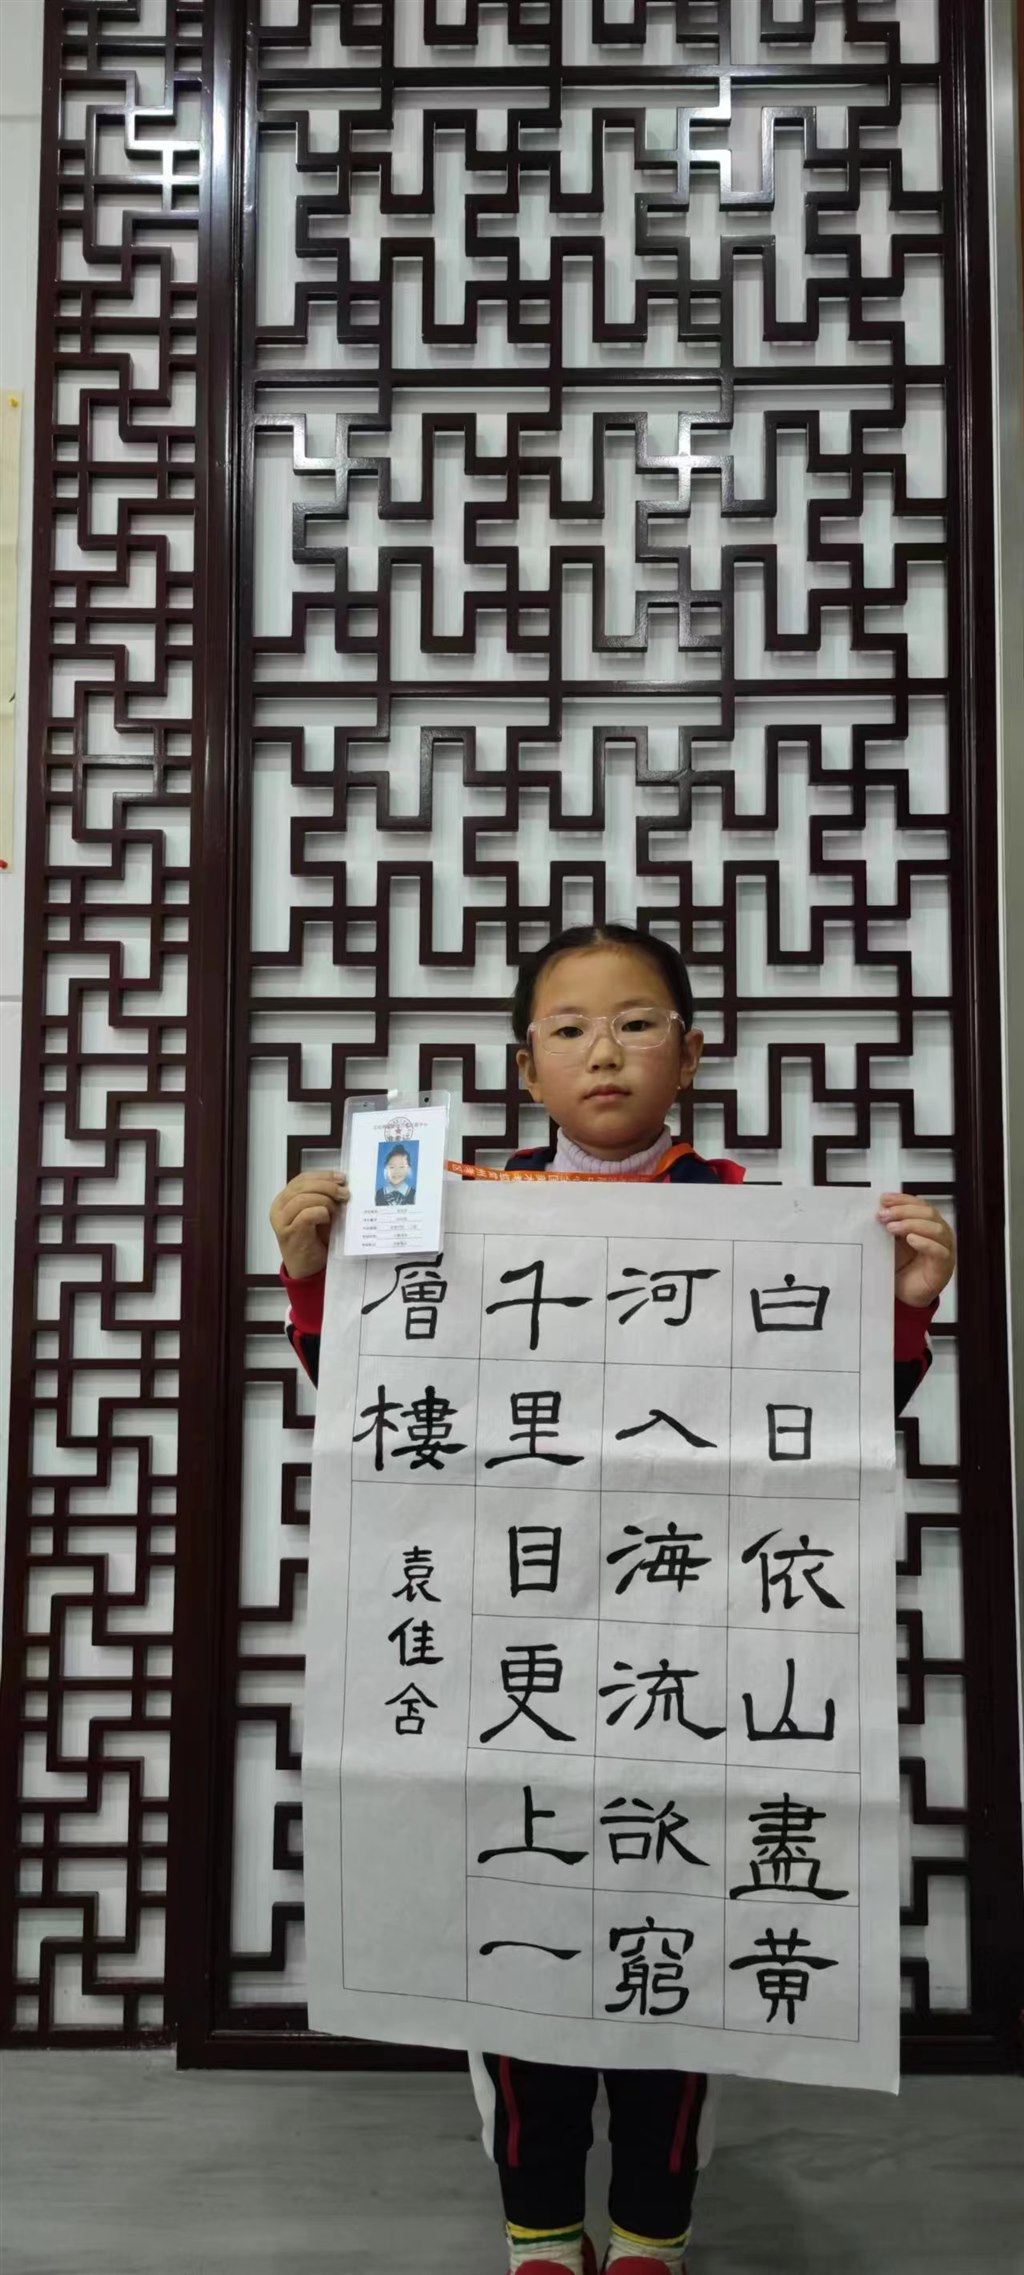 白日依山盡黄
河入海流欲窮
千里目更上一
層樓
袁佳舍